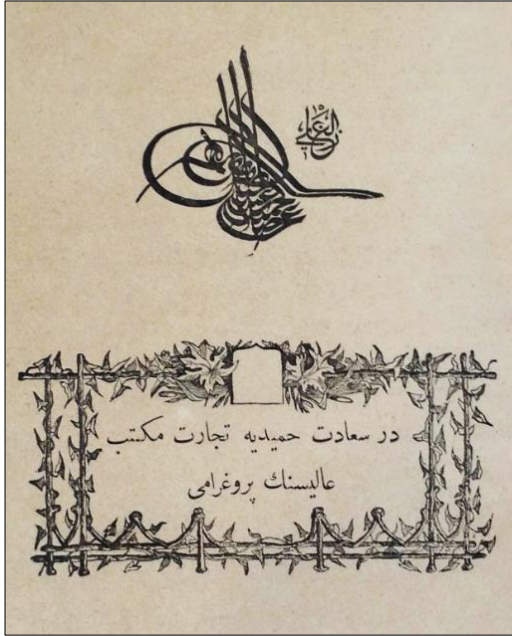 الغازی
در سعادت حمیدیه تجارت مكتب
عالیسنك پروغرامی